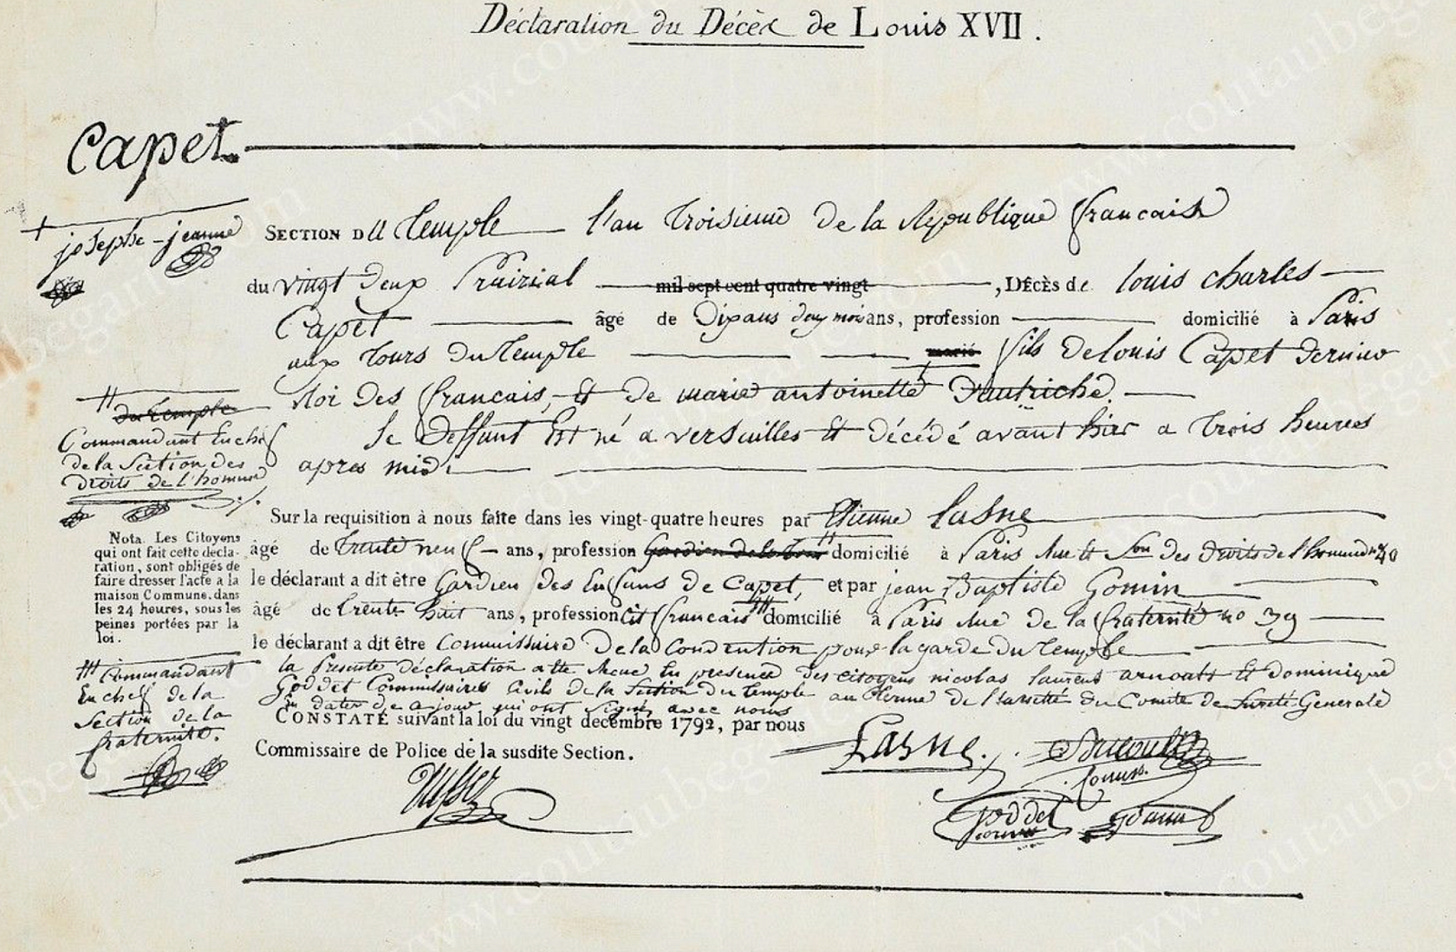 Déclaration du Décès de Louis XVII.
Capet
+ josephe-jeanne
SECTION DU Temple l'an troisieme de la République francaise
du vingt deux Prairial mil sept cent quatre vingt, DÉCÈS de Louis charles
Capet âgé de Dix ans deux mois ans, profession domicilié à Paris
aux tours du temple marié fils de louis Capet dernier
Roi des francais, et de marie antoinette + D'autriche.
Le deffunt Est né a versailles et décédé avant hier a trois heures
apres midi
# du temple
Commandant En chef
de la Section des
droits de l'homme
Sur la requisition à nous faite dans les vingt-quatre heures par Etienne Lasne
âgé de trente neuf ans, profession Gardien de la tour # domicilié à Paris Rue et Son des droits de l'homme n° 48
le déclarant a dit être Gardien des Enfans de Capet, et par jean Baptiste Gomin
âgé de trente huit ans, profession Cit francais # domicilié à Paris Rue de la fraternité no 39
le déclarant a dit être Commissaire De la Convention pour la garde du temple
la Presente déclaration En presence des citoyens nicolas laurent arnoult et dominique
Goddet Commissaires Civils de la Section du temple au de du Comité de Sureté Generale
En datte de ce jour qui ont signé avec nous
CONSTATÉ suivant la loi du vingt decembre 1792, par nous
Commissaire de Police de la susdite Section.
Nota. Les Citoyens
qui ont fait cette décla-
ration, sont obligés de
faire dresser l'acte a la
maison Commune, dans
les 24 heures, sous les
peines portées par la
loi.
# Commandant
En chef de la
Section de la
fraternité.
Lasne.
Goddet
Gomin
www.coutaubegarie.com